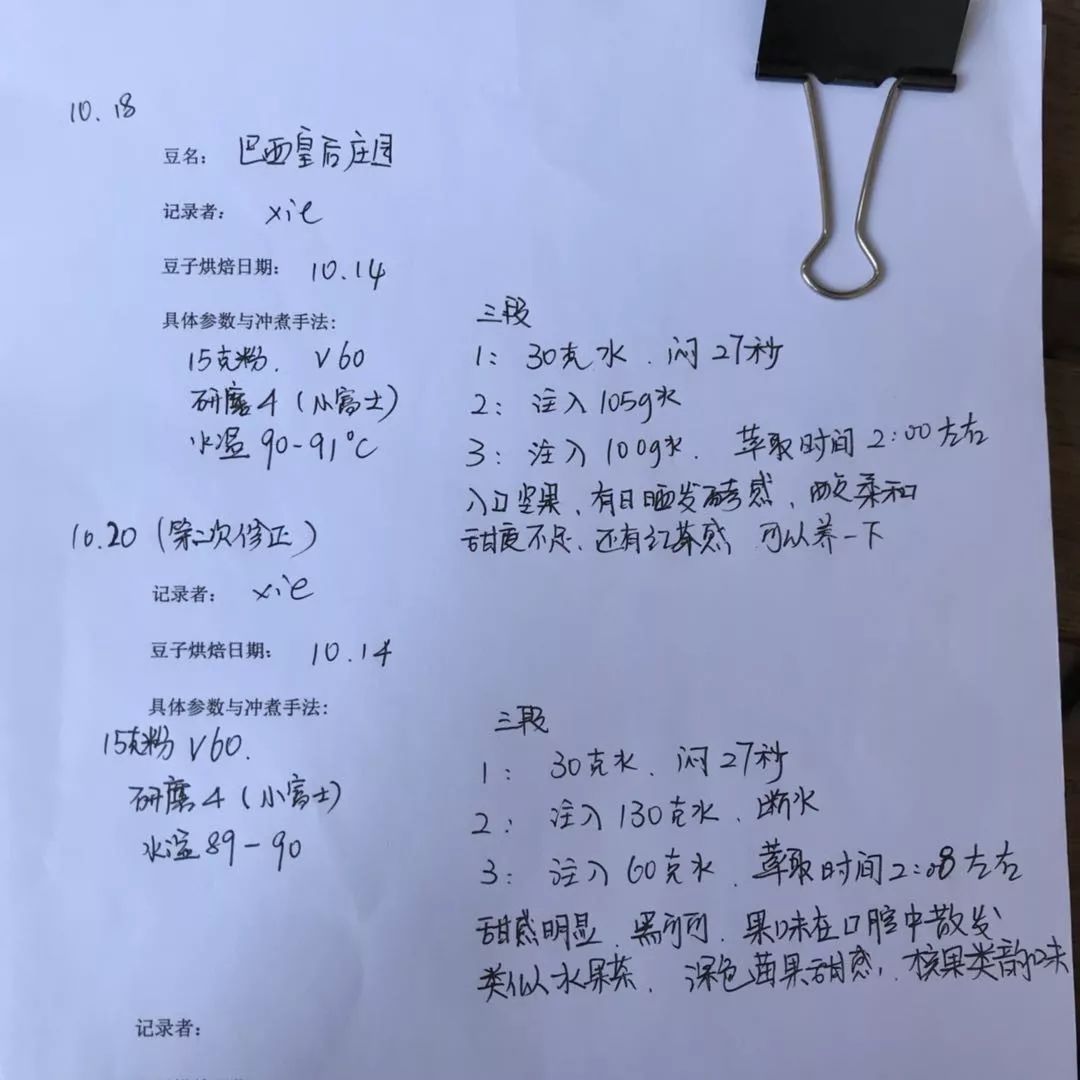 10.18
豆名: 巴西皇后庄园
记录者: xie
豆子烘焙日期: 10.14
具体参数与冲煮手法:
15克粉. V60
研磨4(小富士)
水温 90-91°C
三段
1: 30克水. 闷27秒
2: 注入105g水
3: 注入100g水. 萃取时间2:00左右
入口坚果、有日晒发酵感, 柔和
甜度不足、还有红茶感 可以养一下
10.20(第二次修正)
记录者: xie
豆子烘焙日期: 10.14
具体参数与冲煮手法:
15克粉 V60.
研磨4(小富士)
水温 89-90
三段
1: 30克水、闷27秒
2: 注入130克水、断水
3: 注入60克水. 萃取时间2:08左右
甜感明显、黑可可、果味在口腔中散发
类似水果茶、深色莓果甜感, 核果类韵味
记录者: